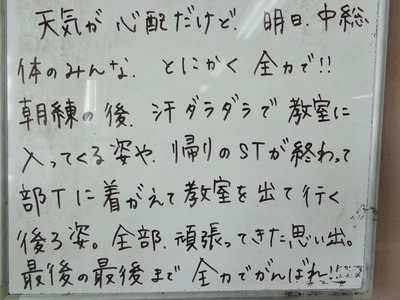 天気が心配だけど、明日、中総
体のみんな、とにかく全力で!!
朝練の後、汗ダラダラで教室に
入ってくる姿や、帰りのSTが終わって
部Tに着がえて教室を出て行く
後ろ姿。全部、頑張ってきた思い出。
最後の最後まで全力でがんばれ!!